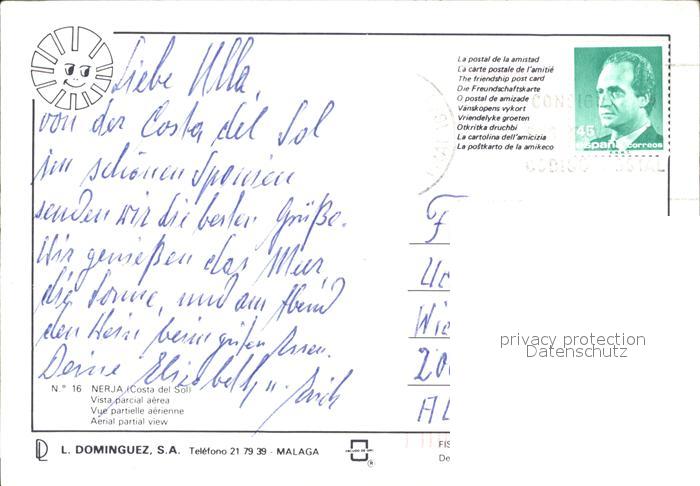 Liebe Ulla,
von der Costa del Sol
im schönen Spanien
senden wir die besten Grüße.
Wir genießen das Meer,
die Sonne, und am Abend
den Wein beim guten Essen.
Deine Elisabeth u. Erich
La postal de la amistad
La carte postale de l'amitié
The friendship post card
Die Freundschaftskarte
O postal de amizade
Vänskopens vykort
Vriendelyke groeten
Otkritka druchbi
La cartolina dell'amicizia
La poŝtkarto de la amikeco
45
españa correos
CODIGO POSTAL
F
Wie
privacy protection
Datenschutz
N.° 16 NERJA (Costa del Sol)
Vista parcial aérea
Vue partielle aérienne
Aerial partial view
L. DOMINGUEZ, S.A. Teléfono 21 79 39 - MALAGA
FIS
De